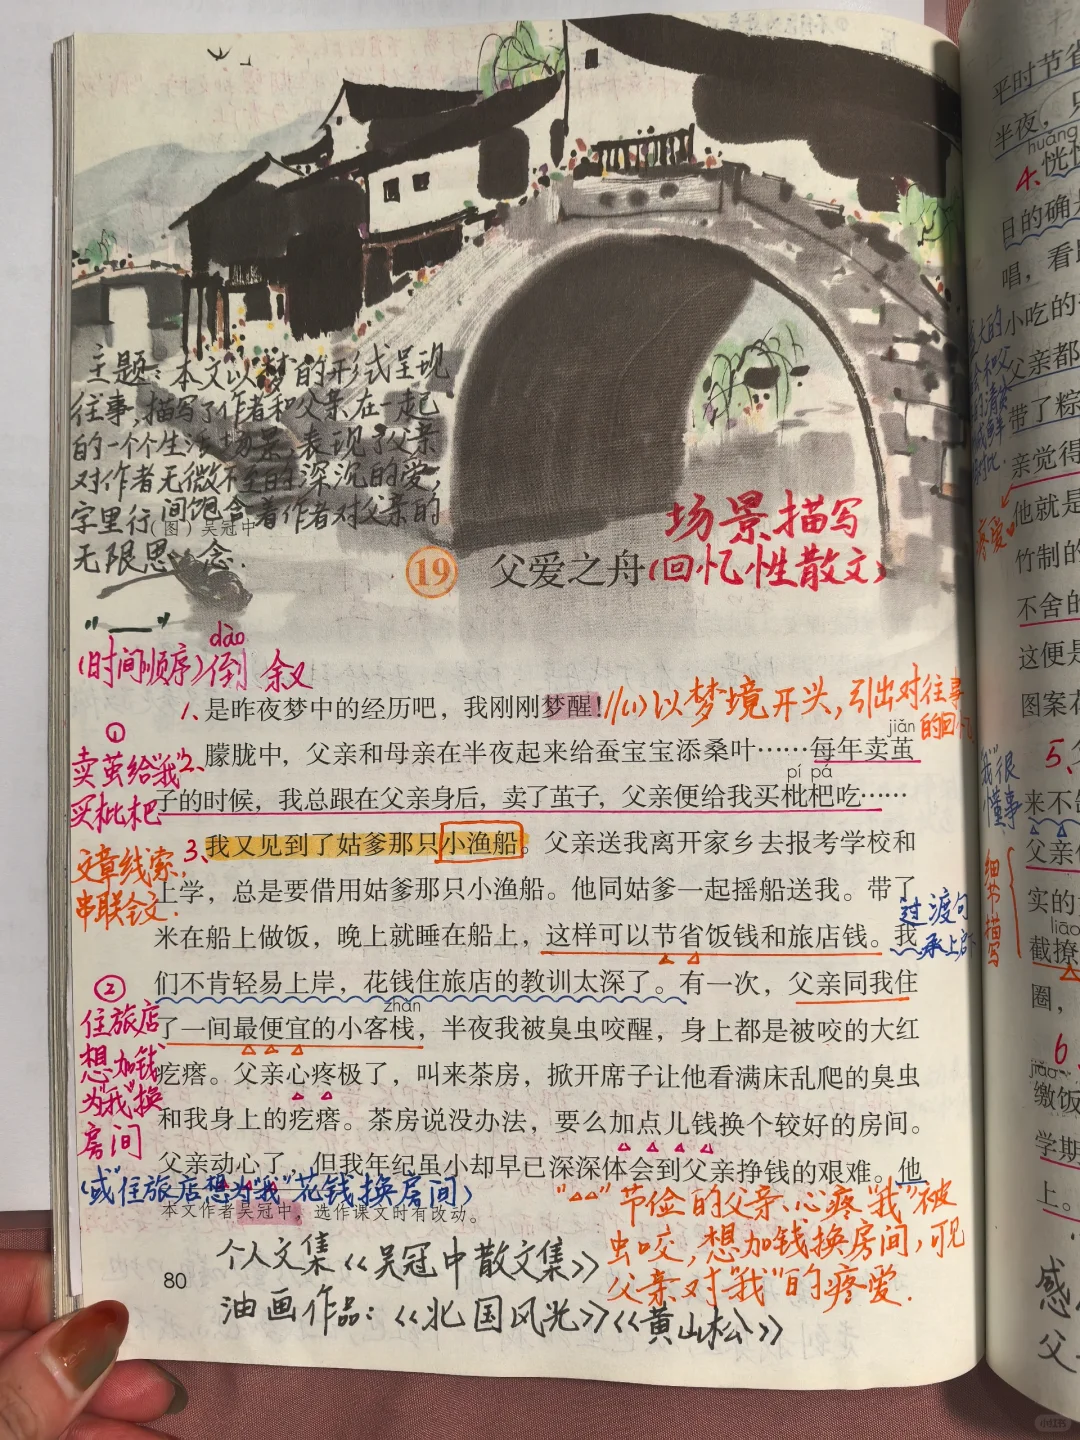 主题:本文以梦的形式呈现
往事,描写了作者和父亲在一起
的一个个生活场景,表现了父亲
对作者无微不至的深沉的爱,
字里行间饱含着作者对父亲的
无限思念.
(图)吴冠中
场景描写
19 父爱之舟(回忆性散文)
"——"
dào
(时间顺序)倒 叙
1、是昨夜梦中的经历吧,我刚刚梦醒!//(1)以梦境开头,引出对往事
的回忆
①
卖茧给我
买枇杷
jiǎn
2、朦胧中,父亲和母亲在半夜起来给蚕宝宝添桑叶……每年卖茧
pí pá
子的时候,我总跟在父亲身后,卖了茧子,父亲便给我买枇杷吃……
文章线索,
串联全文.
3、我又见到了姑爹那只小渔船。父亲送我离开家乡去报考学校和
上学,总是要借用姑爹那只小渔船。他同姑爹一起摇船送我。带了
米在船上做饭,晚上就睡在船上,这样可以节省饭钱和旅店钱。我
过渡句
承上启下
们不肯轻易上岸,花钱住旅店的教训太深了。有一次,父亲同我住
zhàn
了一间最便宜的小客栈,半夜我被臭虫咬醒,身上都是被咬的大红
疙瘩。父亲心疼极了,叫来茶房,掀开席子让他看满床乱爬的臭虫
和我身上的疙瘩。茶房说没办法,要么加点儿钱换个较好的房间。
父亲动心了,但我年纪虽小却早已深深体会到父亲挣钱的艰难。他
②
住旅店
想加钱
为"我"换
房间
(或住旅店想为"我"花钱换房间)
本文作者吴冠中,选作课文时有改动。
"△△"节俭的父亲、心疼"我"被
虫咬,想加钱换房间,可见
父亲对"我"的疼爱.
80
个人文集《吴冠中散文集》
油画作品:《北国风光》《黄山松》
平时节省
半夜,
huǎng
4、恍
目的确
唱,看
小吃的
父亲都
带了粽
亲觉得
他就是
疼爱
竹制的
不舍的
这便是
图案花
5、
"我"很
懂事
来不
父亲
细节描写
实的
liáo
截撩
圈,
6
jiǎo
缴饭
学期
上。
感
父
小红书